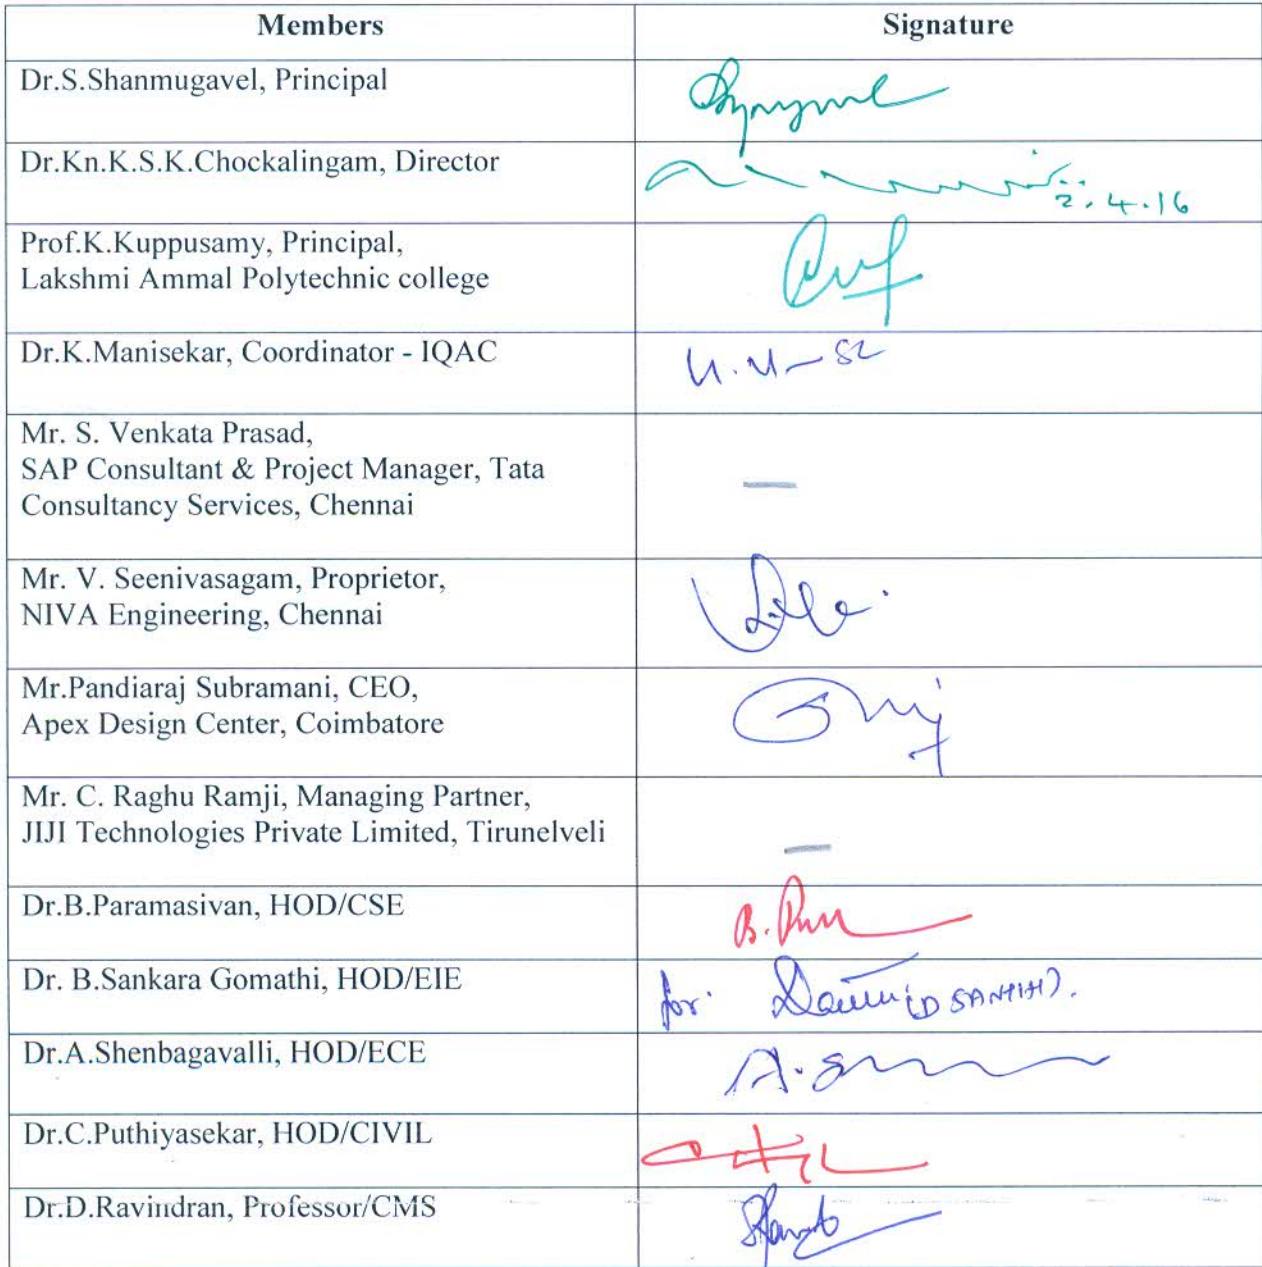 Members Signature
Dr.S.Shanmugavel, Principal
Dr.Kn.K.S.K.Chockalingam, Director
2.4.16
Prof.K.Kuppusamy, Principal,
Lakshmi Ammal Polytechnic college
Dr.K.Manisekar, Coordinator - IQAC
Mr. S. Venkata Prasad,
SAP Consultant & Project Manager, Tata
Consultancy Services, Chennai
—
Mr. V. Seenivasagam, Proprietor,
NIVA Engineering, Chennai
Mr.Pandiaraj Subramani, CEO,
Apex Design Center, Coimbatore
Mr. C. Raghu Ramji, Managing Partner,
JIJI Technologies Private Limited, Tirunelveli
—
Dr.B.Paramasivan, HOD/CSE
Dr. B.Sankara Gomathi, HOD/EIE for
Dr.A.Shenbagavalli, HOD/ECE
Dr.C.Puthiyasekar, HOD/CIVIL
Dr.D.Ravindran, Professor/CMS